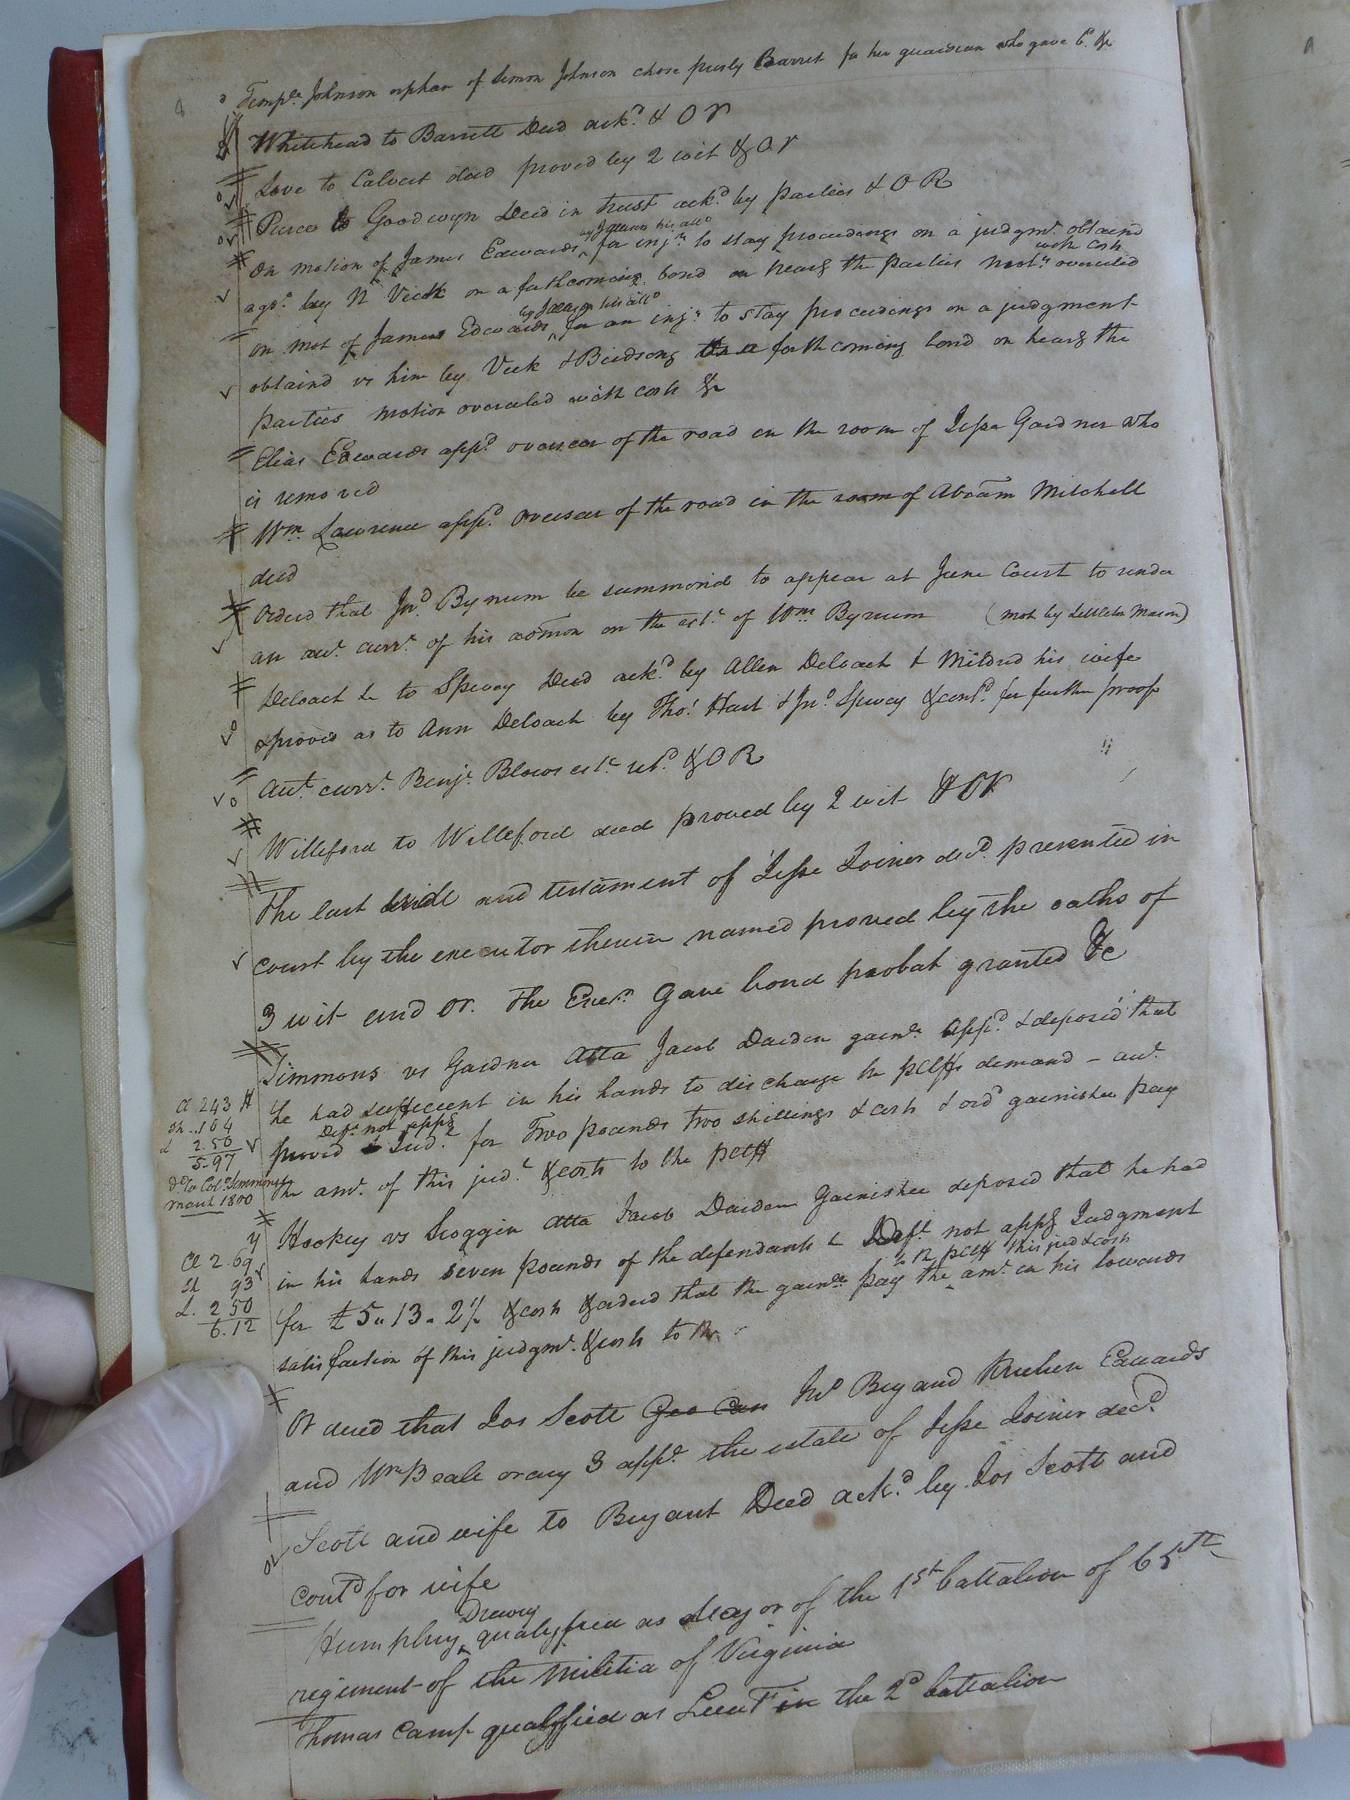 Temple Johnson orphan of Simon Johnson chose Pursly Barret for her guardian who gave bd. &c
Whitehead to Barrett Deed ackd. & O r
Love to Calvert deed proved by 2 wit & O r
Purce to Goodwyn Deed in trust ackd. by parties & O R
by Jackson his atto
On motion of James Edwards for injn. to stay proceedings on a judgmt. obtaind
with costs
agst. by N Vick on a forthcoming bond on hearg the parties motn. overruled
by Jackson his atto
on mot of James Edwards for an injn. to stay proceedings on a judgment
obtaind vs him by Vick & Birdsong forthcoming bond on hearg the
parties motion overruled with costs &c
Elias Edwards appd. overseer of the road in the room of Jesse Gardner who
is removed
Wm. Lawrence appd. overseer of the road in the room of Abram Mitchell
decd
Orderd that Jno. Bynum be summond to appear at June Court to render
an act. currt. of his admon on the estt. of Wm. Bynum (mot by Littleton Mason)
Deloach & to Spivey Deed ackd. by Allen Deloach & Mildred his wife
& proved as to Ann Deloach by Thos. Hart & Jno. Spivey & contd. for further proof
Act. currt. Benja. Blows estt. retd. & O R
Willeford to Willeford deed proved by 2 wit & O r
The last will and testament of Jesse Joiner decd. presented in
court by the executor therein named proved by the oaths of
3 wit and Or. The Exer. Gave bond probat granted &c
Simmons vs Gardner Atta Jacob Darden garne. appd. & deposed that
Cl 243
he had sufficient in his hands to discharge the pltffs demand - act.
Sh.. 104
Deft. not appg
L 2.50
proved Judt. for Two pounds two shillings & costs & ord garnishee pay
5.97
the amt. of this judt. & costs to the pltff
Do. to Colo. Simmons
March 1800
Hockey vs Scoggin Atta Jacob Darden Garnishee deposed that he had
Cl 2 69
in his hands seven pounds of the defendants & Deft. not appg Judgment
Sh 93
to the pltff this jud & costs
L. 2 50
for £5..13..2½ & costs & orderd that the garnee pay the amt. in his towards
6.12
satisfaction of this judgmt. & costs to the
Ordered that Jos Scott Geo Can Jno Bryand Reuben Edwards
and Wm Beale or any 3 appr. the estate of Jesse Joiner decd.
Scott and wife to Bryant Deed ackd. by Jos Scott and
contd for wife
Drewry
Humphry qualifyed as Mayor of the 1st battalion of 65th
regiment of the Militia of Virginia
Thomas Camp qualified as Lieut in the 2d battalion